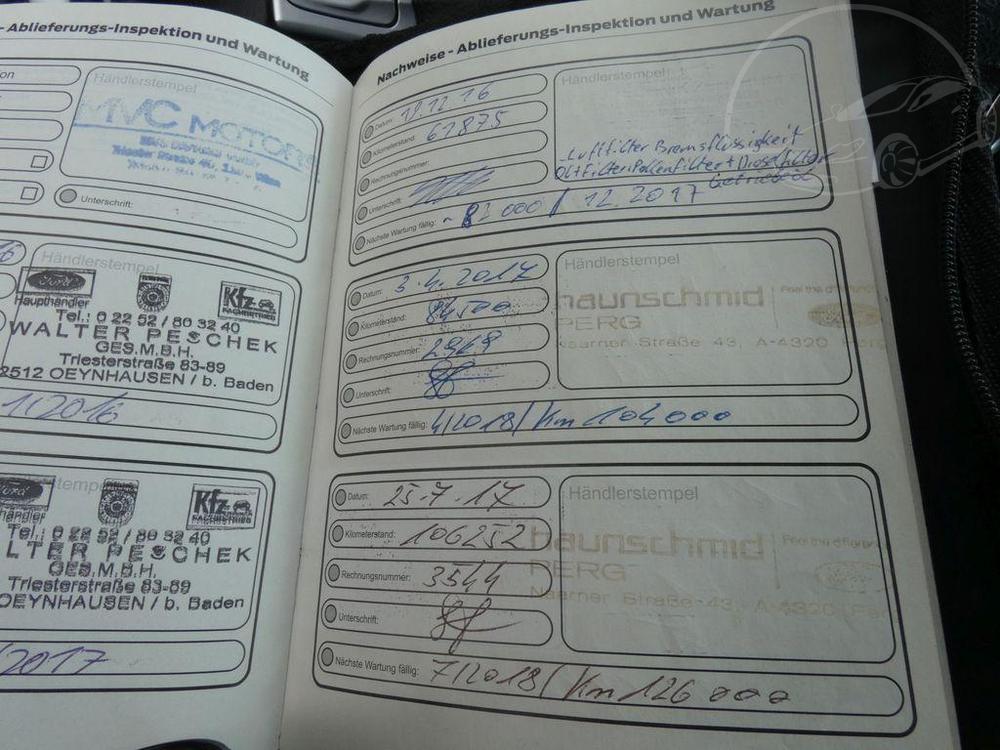 - Ablieferungs-Inspektion und Wartung
Händlerstempel
MVC MOTORS
Unterschrift:
Händlerstempel
Ford
Haupthändler
Kfz
FACHBETRIEB
Tel.: 0 22 52 / 80 32 40
WALTER PESCHEK
GES.M.B.H.
Triesterstraße 83-89
2512 OEYNHAUSEN / b. Baden
1/2016
Ford
Kfz
FACHBETRIEB
Tel.: 0 22 52 / 80 32 40
LTER PESCHEK
GES.M.B.H.
Triesterstraße 83-89
OEYNHAUSEN / b. Baden
/2017
Nachweise - Ablieferungs-Inspektion und Wartung
Datum: 19.12.16
Kilometerstand: 61875
Rechnungsnummer:
Unterschrift:
Nächste Wartung fällig: 82000 / 12.2017
Händlerstempel
Luftfilter Bremsflüssigkeit
Öl+Filter Pollenfilter + Dieselfilter
Datum: 3.4.2017
Kilometerstand: 84500
Rechnungsnummer: 2969
Unterschrift:
Nächste Wartung fällig: 4/2018 / Km 104000
Händlerstempel
haunschmid
PERG
Naarner Straße 43, A-4320 Perg
Datum: 25.7.17
Kilometerstand: 106252
Rechnungsnummer: 3544
Unterschrift:
Nächste Wartung fällig: 7/2018 / Km 126000
Händlerstempel
haunschmid
PERG
Naarner Straße 43, A-4320 Per